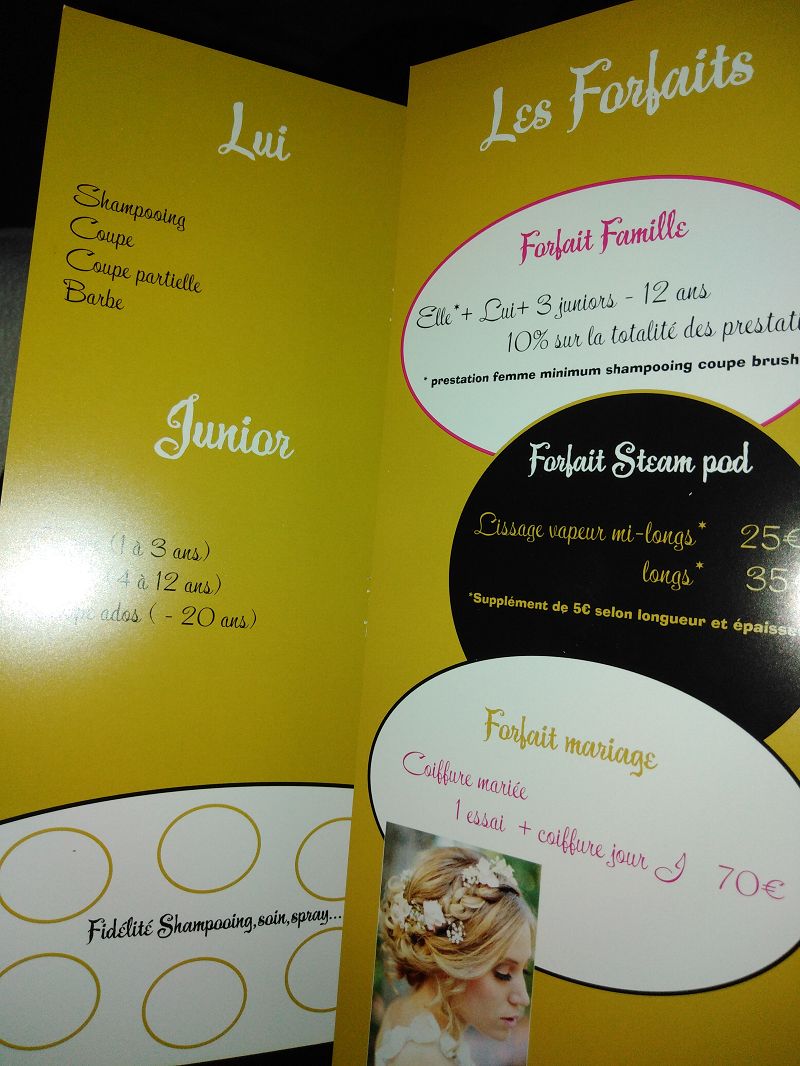 Lui
Shampooing
Coupe
Coupe partielle
Barbe
Junior
(1 à 3 ans)
(4 à 12 ans)
ados ( - 20 ans)
Fidélité Shampooing,soin,spray...
Les Forfaits
Forfait Famille
Elle*+ Lui+ 3 juniors - 12 ans
10% sur la totalité des prestati
* prestation femme minimum shampooing coupe brush
Forfait Steam pod
Lissage vapeur mi-longs* 25€
longs* 35
*Supplément de 5€ selon longueur et épaisse
Forfait mariage
Coiffure mariée
1 essai + coiffure jour J 70€